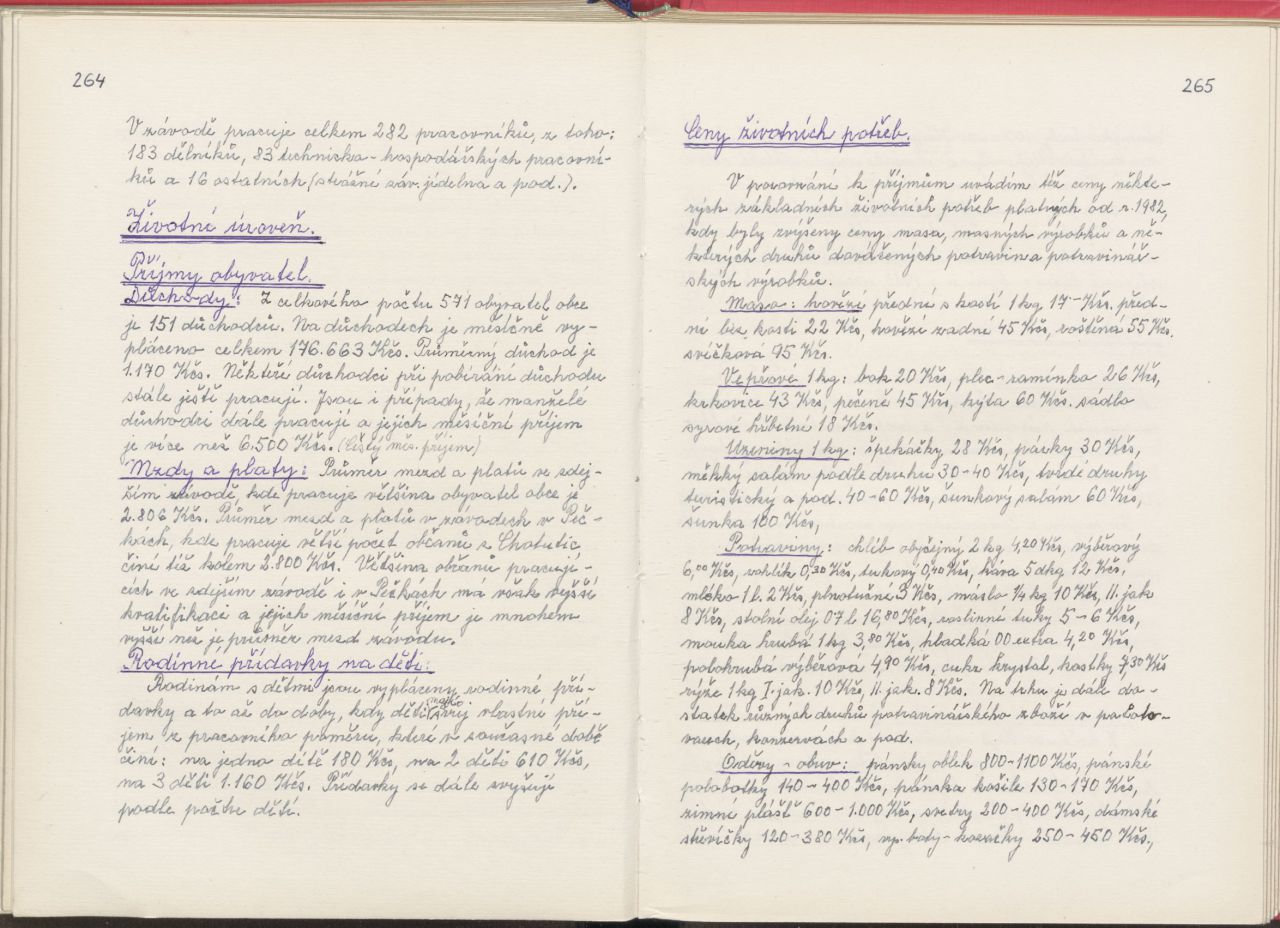 264
V závodě pracuje celkem 282 pracovníků, z toho:
183 dělníků, 83 technicko-hospodářských pracovní-
ků a 16 ostatních (strážní záv. jídelna a pod.).
Životní úroveň.
Příjmy obyvatel.
Důchody: Z celkového počtu 571 obyvatel obce
je 151 důchodců. Na důchodech je měsíčně vy-
pláceno celkem 176.663 Kčs. Průměrný důchod je
1.170 Kčs. Někteří důchodci při pobírání důchodu
stále ještě pracují. Jsou i případy, že manželé
důchodci dále pracují a jejich měsíční příjem
je více než 6.500 Kčs. (Čistý měs. příjem)
Mzdy a platy: Průměr mezd a platů ve zdej-
ším závodě, kde pracuje většina obyvatel obce je
2.806 Kčs. Průměr mezd a platů v závodech v Peč-
kách, kde pracuje větší počet občanů z Chotutic
činí též kolem 2.800 Kčs. Většina občanů pracují-
cích ve zdejším závodě i v Pečkách má však vyšší
kvalifikaci a jejich měsíční příjem je mnohem
vyšší než je průměr mezd závodu.
Rodinné přídavky na děti:
Rodinám s dětmi jsou vypláceny rodinné pří-
davky a to až do doby, kdy děti svůj vlastní pří-
jem z pracovního poměru, které v současné době
činí: na jedno dítě 180 Kčs, na 2 děti 610 Kčs,
na 3 děti 1.160 Kčs. Přídavky se dále zvyšují
podle počtu dětí.
265
Ceny životních potřeb.
V porovnání k příjmům uvádím též ceny někte-
rých základních životních potřeb platných od r. 1982,
kdy byly zvýšeny ceny masa, masných výrobků a ně-
kterých druhů dovážených potravin a potravinář-
ských výrobků.
Maso: hovězí přední s kostí 1 kg 17- Kčs. před-
ní bez kosti 22 Kčs, hovězí zadní 45 Kčs, roštěná 55 Kčs.
svíčková 75 Kčs.
Vepřové 1 kg: bok 20 Kčs, plec-ramínko 26 Kčs,
krkovice 43 Kčs, pečeně 45 Kčs, kýta 60 Kčs. sádlo
syrové hřbetní 18 Kčs.
Uzeniny 1 kg: špekáčky 28 Kčs, párky 30 Kčs,
měkký salám podle druhu 30-40 Kčs, tvrdé druhy
turistický a pod. 40-60 Kčs, šunkový salám 60 Kčs,
šunka 100 Kčs,
Potraviny: chléb obyčejný 2 kg 4,20 Kčs, výběrový
6,00 Kčs, rohlík 0,30 Kčs, tukový 0,40 Kčs, káva 5 dkg 12 Kčs,
mléko 1 l. 2 Kčs, plnotučné 3 Kčs, máslo 1/4 kg 10 Kčs, II. jak
8 Kčs, stolní olej 07 l 16,80 Kčs, rostlinné tuky 5-6 Kčs,
mouka hrubá 1 kg 3,80 Kčs, hladká 00 extra 4,20 Kčs,
polohrubá výběrová 4,90 Kčs, cukr krystal, kostky 7,30 Kčs
rýže 1 kg I. jak. 10 Kčs, II. jak. 8 Kčs. Na trhu je dále do-
statek různých druhů potravinářského zboží v poloto-
varech, konzervách a pod.
Oděvy - obuv: pánský oblek 800-1100 Kčs, pánské
polobotky 140-400 Kčs, pánska košile 130-170 Kčs,
zimní plášť 600-1.000 Kčs, svetry 200-400 Kčs, dámské
střevíčky 120-380 Kčs, boty-kozačky 250-450 Kčs.,